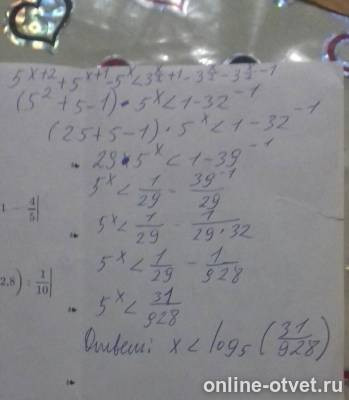 5^(x+2) + 5^(x+1) - 5^x < 3^(x/2+1) - 3^(x/2) - 3^(x/2-1)
(5^2 + 5 - 1) · 5^x < 1 - 32^(-1)
(25 + 5 - 1) · 5^x < 1 - 32^(-1)
29 · 5^x < 1 - 39^(-1)
5^x < 1/29 - 39^(-1)/29
1 - 4/5|
5^x < 1/29 - 1/(29·32)
5^x < 1/29 - 1/928
2,8) : 1/10|
5^x < 31/928
Ответ: x < log₅(31/928)
online-otvet.ru